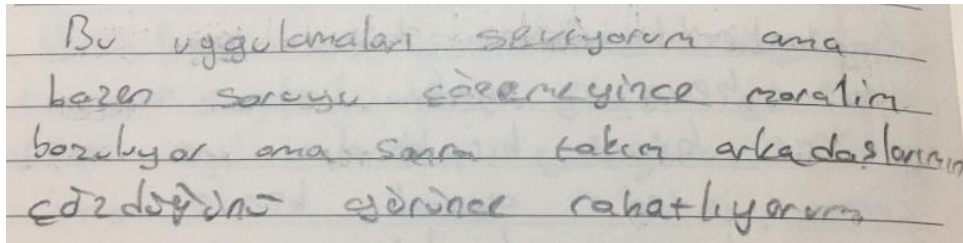 Bu uygulamaları seviyorum ama
bazen soruyu çözemeyince moralim
bozuluyor ama sonra takım arkadaslarımın
çözdüğünü görünce rahatlıyorum